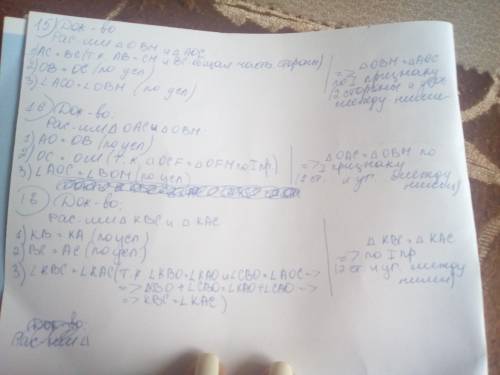 15) Док-во
Рас-им Δ OBM и Δ AOC
1) AC = BC (т.к. AB = CM и BC общая часть стороны)
2) OB = OC (по усл)
3) ∠ACO = ∠OBM (по усл)
=> Δ OBM = Δ AOC
по I признаку
(2 стороны и угол
между ними)
16) Док-во:
Рас-им Δ OAC и Δ OBM.
1) AO = OB (по усл)
2) OC = OM (т.к. Δ OCF = Δ OFM по I пр)
3) ∠AOC = ∠BOM (по усл)
Δ OAC = Δ OBM по
=> I признаку
(2 ст. и уг. между
ними)
18) Док-во:
Рас-им Δ KBC и Δ KAC
1) KB = KA (по усл)
2) BC = AC (по усл)
3) ∠KBC = ∠KAC (т.к ∠KBO = ∠KAO и ∠CBO = ∠AOC =>
=> ∠KBO + ∠CBO = ∠KAO + ∠CAO =>
=> KBC = ∠KAC)
Δ KBC = Δ KAC
=> по I пр
(2 ст и уг. между
ними)
Док-во:
Рас-им Δ